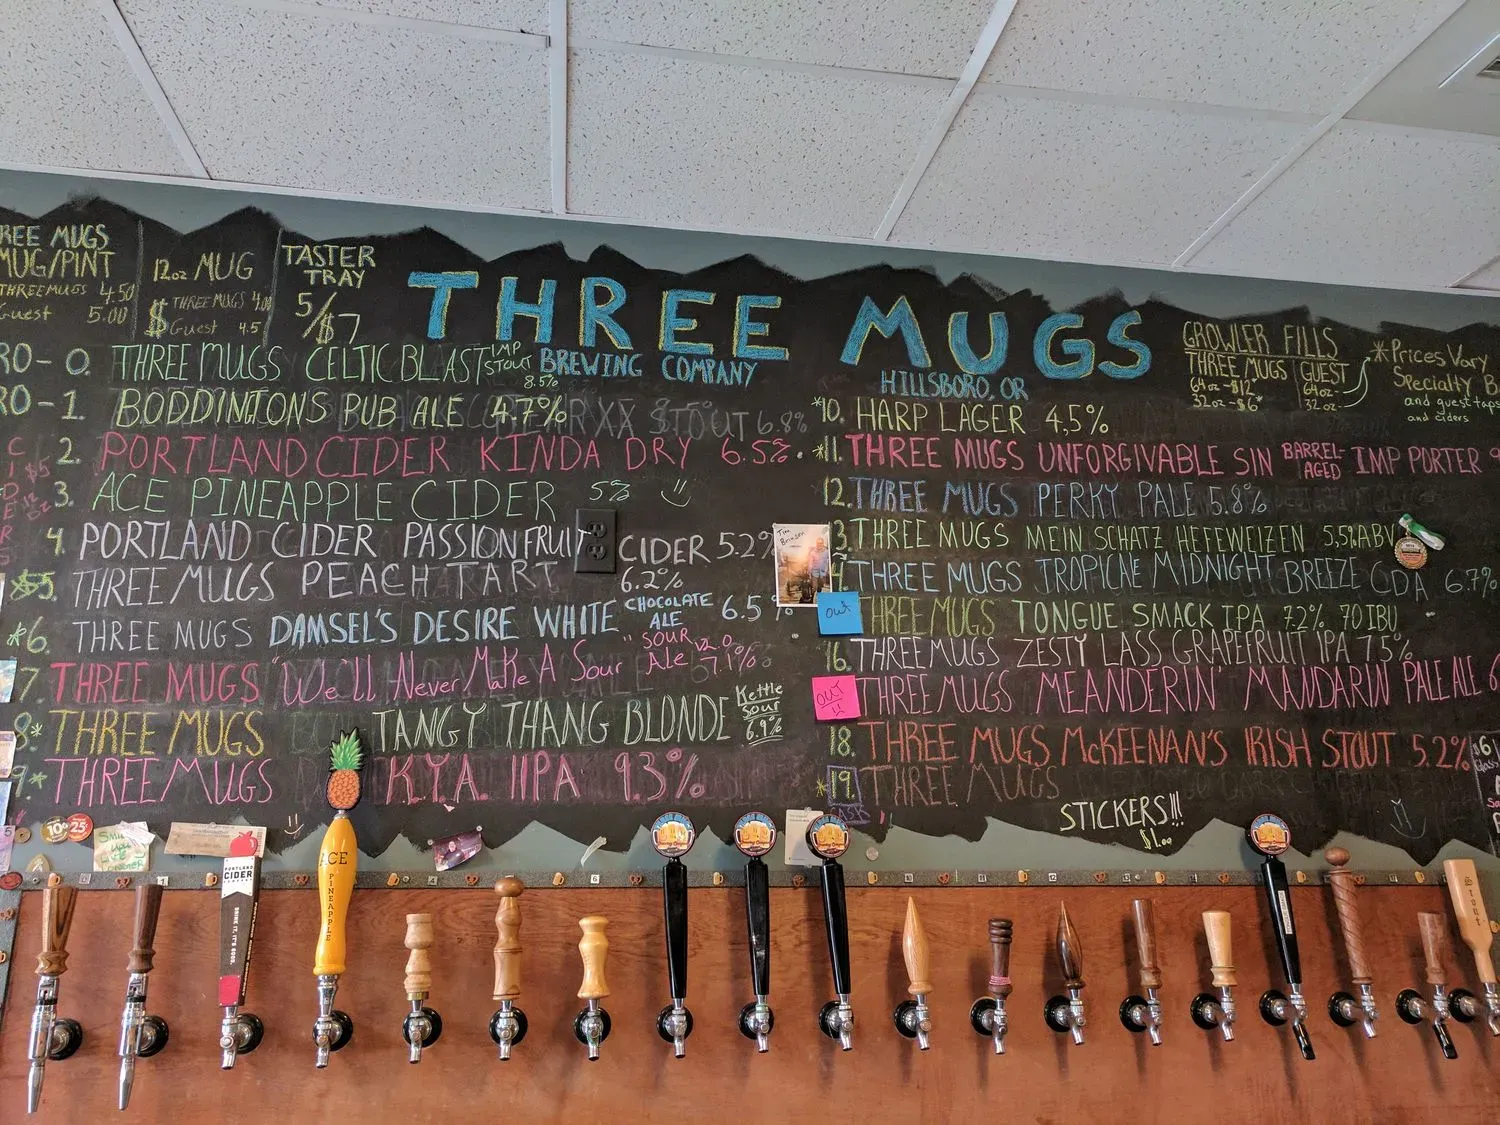 REE MUGS
MUG/PINT
THREE MUGS 4.50
Guest 5.00
12oz MUG
$ THREE MUGS 4.00
Guest 4.5
TASTER
TRAY
5/$7
THREE MUGS
BREWING COMPANY
HILLSBORO, OR
GROWLER FILLS
THREE MUGS GUEST
64oz-$12* 64oz-
32oz-$6* 32oz-
*Prices Vary
Specialty B
and guest taps
and ciders
RO-0. THREE MUGS CELTIC BLAST IMP STOUT 8.5%
RO-1. BODDINGTONS PUB ALE 4.7%
2. PORTLAND CIDER KINDA DRY 6.5%.
3. ACE PINEAPPLE CIDER 5%
4. PORTLAND CIDER PASSIONFRUIT CIDER 5.2%
5. THREE MUGS PEACH TART 6.2%
*6. THREE MUGS DAMSEL'S DESIRE WHITE CHOCOLATE ALE 6.5%
7 THREE MUGS "We'll Never Make A Sour" SOUR ALE V2.0 7.1%
8.* THREE MUGS TANGY THANG BLONDE Kettle Sour 6.9%
9.* THREE MUGS K.Y.A. IIPA 9.3%
*10. HARP LAGER 4,5%
*11. THREE MUGS UNFORGIVABLE SIN BARREL-AGED IMP PORTER 9
12. THREE MUGS PERKY PALE 5.8%
3. THREE MUGS MEIN SCHATZ HEFEWEIZEN 5.5% ABV
THREE MUGS TROPICAL MIDNIGHT BREEZE CDA 6.7%
OUT THREE MUGS TONGUE SMACK IPA 7.2% 70 IBU
16. THREE MUGS ZESTY LASS GRAPEFRUIT IPA 7.5%
OUT THREE MUGS MEANDERIN' MANDARIN PALE ALE 6
18. THREE MUGS McKEENAN'S IRISH STOUT 5.2%
*19. THREE MUGS
ASK
STICKERS!!!
$1.00
Tim
PORTLAND
CIDER
COMPANY
DRINK IT. IT'S GOOD.
ACE
PINEAPPLE
Stout